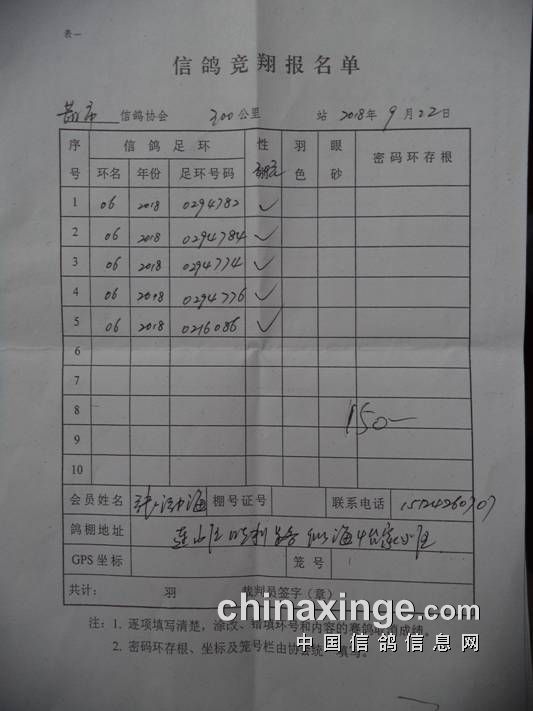 表一
信鸽竞翔报名单
信鸽协会 300公里 站 2018年9月22日
序号 信鸽足环 性 羽色 眼砂 密码环存根
环名 年份 足环号码
1 06 2018 0294782 ✓
2 06 2018 0294784 ✓
3 06 2018 0294774 ✓
4 06 2018 0294776 ✓
5 06 2018 0216086 ✓
6
7
8 150-
9
10
会员姓名 张 海 棚号证号 联系电话 15124260707
鸽棚地址 连山区
GPS坐标 笼号
共计: 羽 裁判员签字(章)
chinaxinge.com
注:1. 逐项填写清楚,涂改、错项环号和内容的赛鸽取消成绩。
中国信鸽信息网
2. 密码环存根、坐标及笼号栏由协会统一填写。